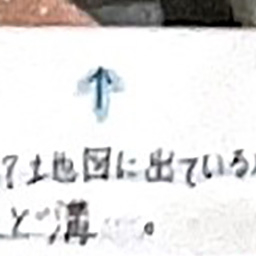 ↑
?土地図に出ている
と溝 。